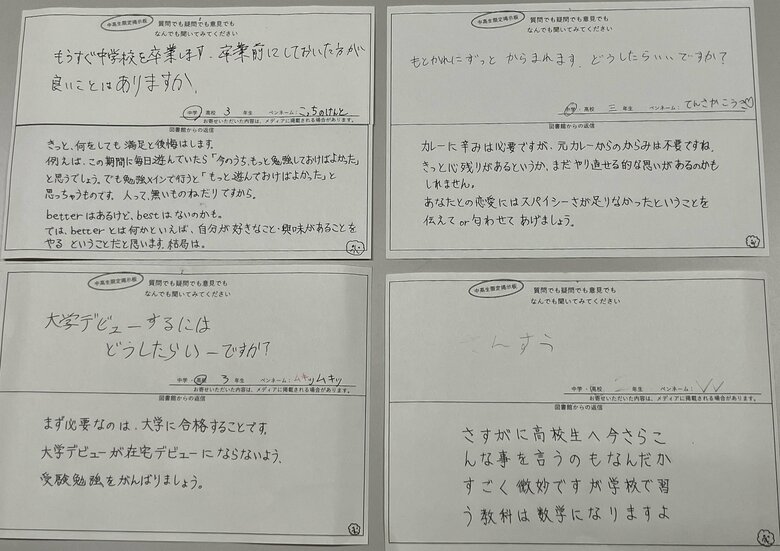 中高生限定掲示板
質問でも疑問でも意見でも
なんでも聞いてみてください
もうすぐ中学校を卒業します。卒業前にしておいた方が
良いことはありますか。
中学・高校 3 年生 ペンネーム：こっちのけんと
お寄せいただいた内容は、メディアに掲載される場合があります。
図書館からの返信
きっと、何をしても満足と後悔はします。
例えば、この期間に毎日遊んでいたら「今のうち、もっと勉強しておけばよかった」
と思うでしょう。でも勉強メインで行うと「もっと遊んでおけばよかった」と
思っちゃうものです。人って、無いものねだりですから。
betterはあるけど、bestはないのかも。
では、betterとは何かといえば、自分が好きなこと・興味があることを
やる ということだと思います、結局は。
中高生限定掲示板
質問でも疑問でも意見でも
なんでも聞いてみてください
もとかれにずっと からまれます。どうしたらいいですか？
中学・高校 三 年生 ペンネーム：てんさかこうき♡
お寄せいただいた内容は、メディアに掲載される場合があります。
図書館からの返信
カレーに辛みは必要ですが、元カレーからのからみは不要ですね。
きっと心残りがあるというか、まだやり直せる的な思いがあるのかも
しれません。
あなたとの恋愛にはスパイシーさが足りなかったということを
伝えて or 匂わせて あげましょう。
中高生限定掲示板
質問でも疑問でも意見でも
なんでも聞いてみてください
大学デビューするには
どうしたらいーですか？
中学・高校 3 年生 ペンネーム：ムキッムキッ
お寄せいただいた内容は、メディアに掲載される場合があります。
図書館からの返信
まず必要なのは、大学に合格することです。
大学デビューが在宅デビューにならないよう、
受験勉強をがんばりましょう。
中高生限定掲示板
質問でも疑問でも意見でも
なんでも聞いてみてください
さんすう
中学・高校 年生 ペンネーム：
お寄せいただいた内容は、メディアに掲載される場合があります。
図書館からの返信
さすがに高校生へ今さらこ
んな事を言うのもなんだか
すごく微妙ですが学校で習
う教科は数学になりますよ